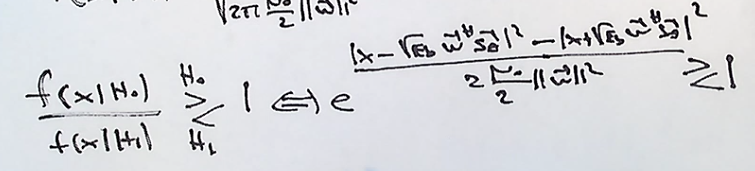 √2π N₀/2 ||w⃗||²
f(x|H₀)/f(x|H₁) ≷ (H₀ / H₁) 1 ⟺ e^{(|x − √E_b w⃗ᴴ s⃗_θ|² − |x + √E_b w⃗ᴴ s⃗_θ|²) / (2 N₀/2 ||w⃗||²)} ≷ 1